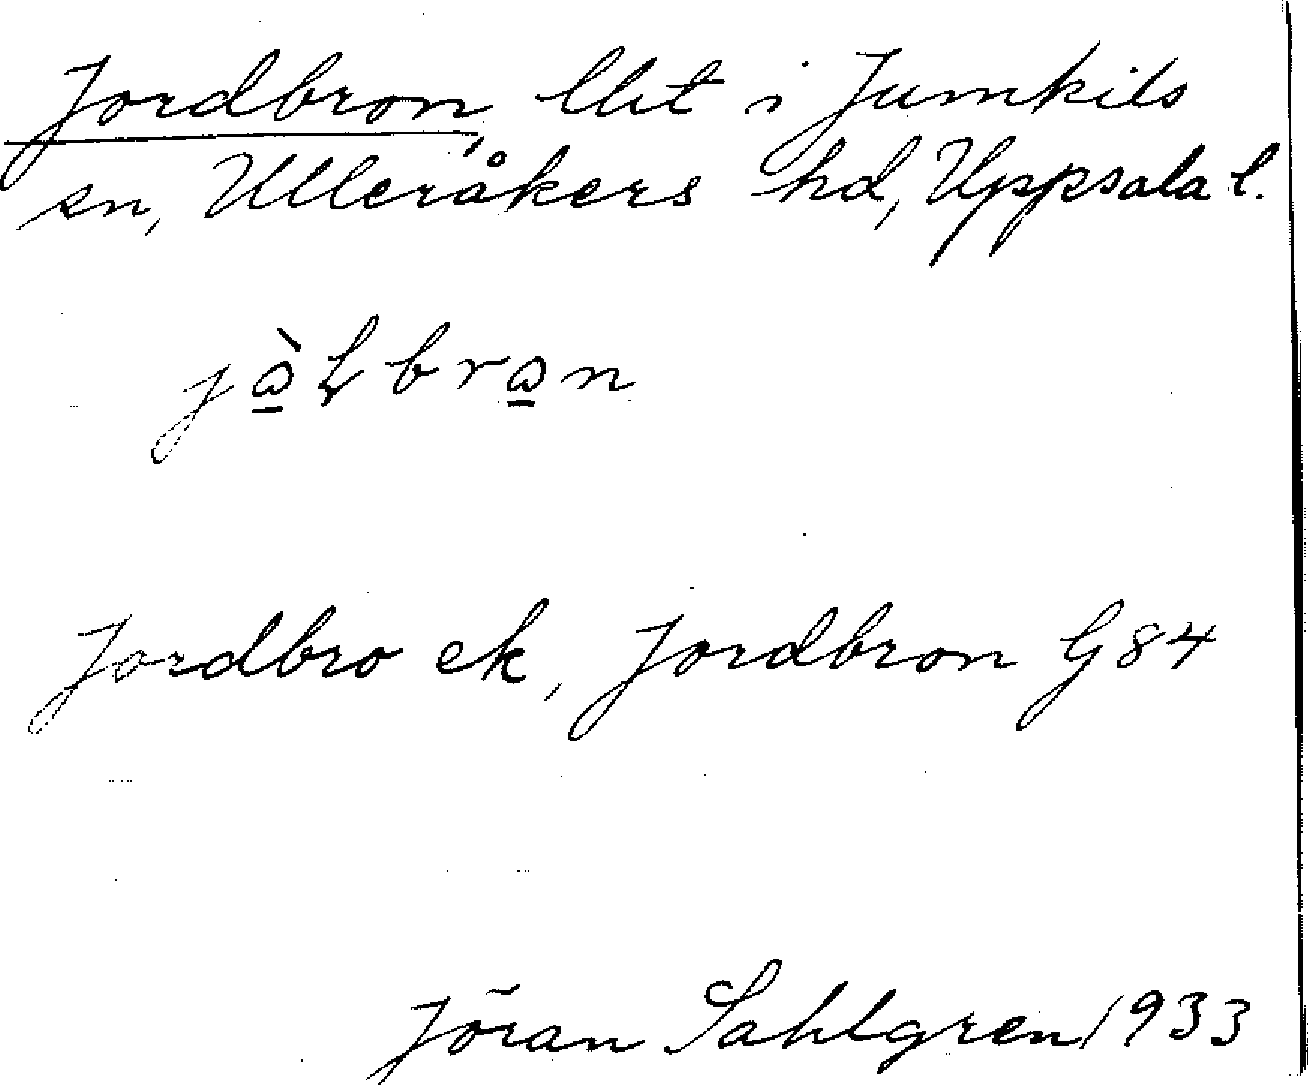 Jordbron, lht i Jumkils
sn, Ulleråkers hd, Uppsala l.
Jordbro ek, Jordbron G84
Jöran Sahlgren 1933